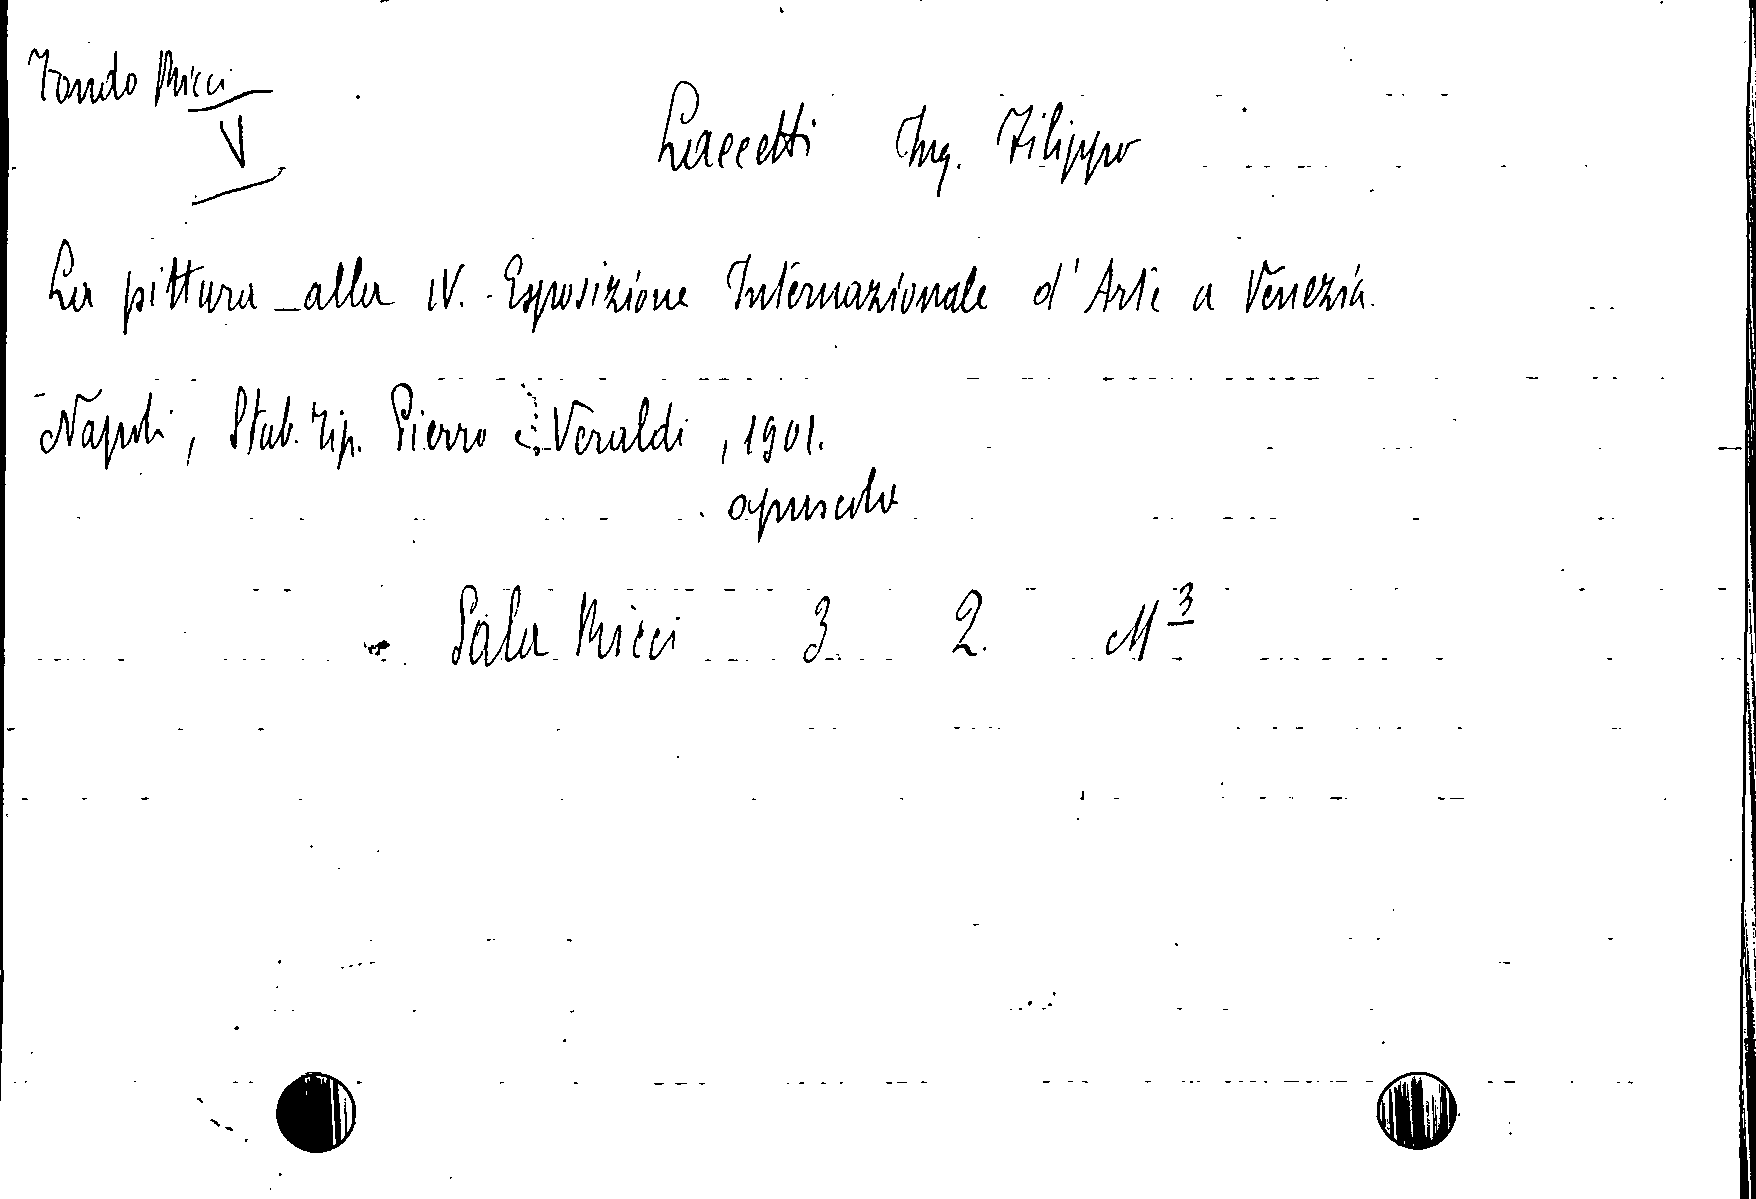 Fondo Ricci
V
Laccetti Ing. Filippo
La pittura alla IV. Esposizione Internazionale d'Arte a Venezia.
Napoli, Stab. Tip. Pierro e Veraldi, 1901.
opuscolo
Sala Ricci 3 2. M 3